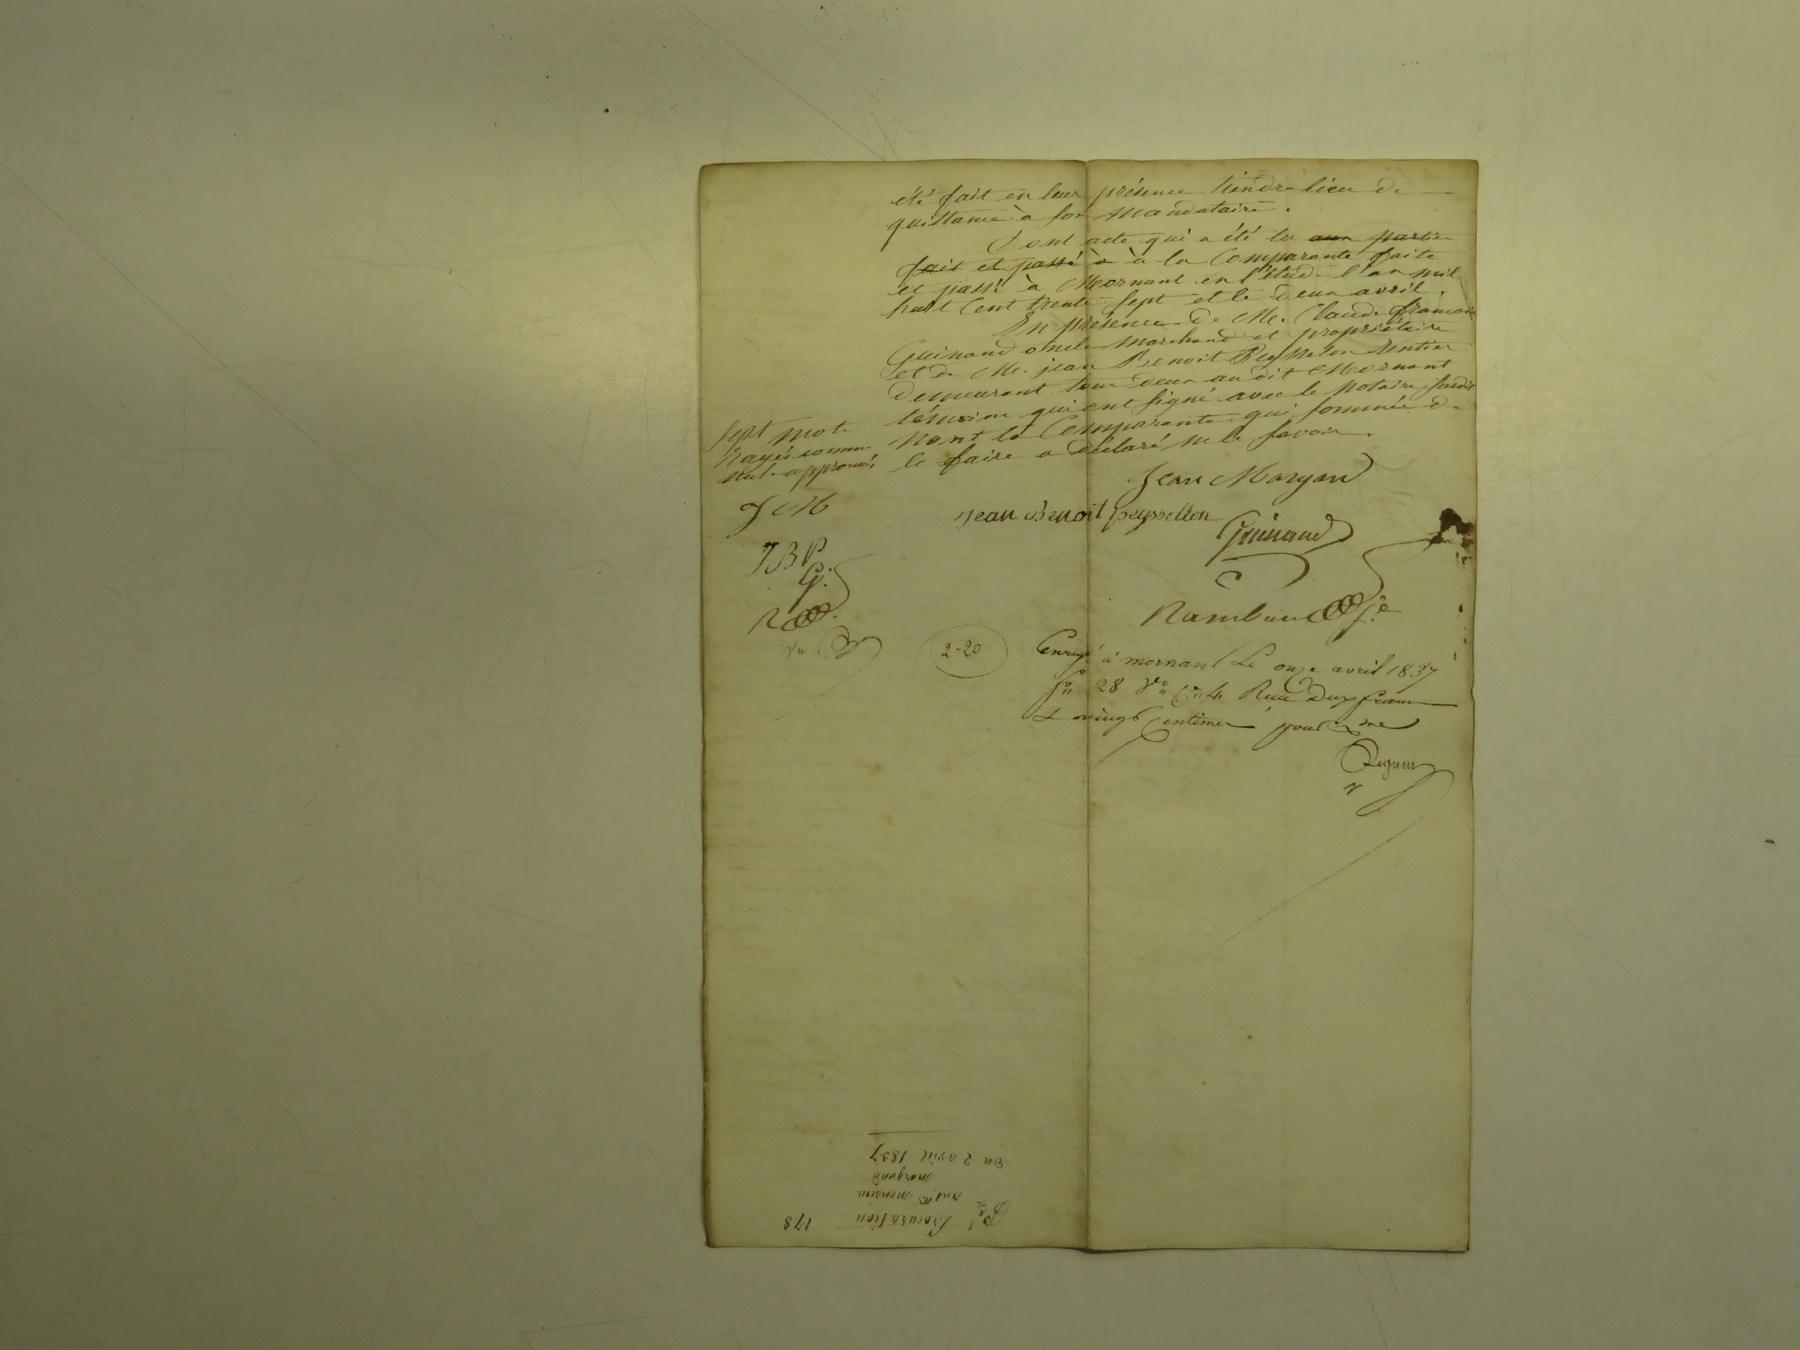 été fait en leur présence tiendra lieu de —
quittance à son Mandataire.
Dont acte qui a été lu aux parties
fait et passé à à la Comparante faite
et passé à Mornant en l'étude l'an mil
huit Cent trente Sept et le deux avril.
En présence de M. Claude françois
Guinand oncle Marchand et propriétaire
et de M. jean Benoit Peysselon Rentier
demeurant tous deux au dit Mornant
témoins qui ont signé avec le notaire susdit
Non la Comparante qui sommée de
le faire a déclaré ne le savoir.
Sept mots
Rayés comme
nuls approuvés
JM
JBP
G.
R
Jean Margand
Jean Benoit peysselon
Guinand
2-20
Enregé à mornant Le onze avril 1837
fo 28 Vo Ce 4 Reçu Deux francs
& vingt Centimes pour
178
Procuration
margand
Du 2 avril 1837